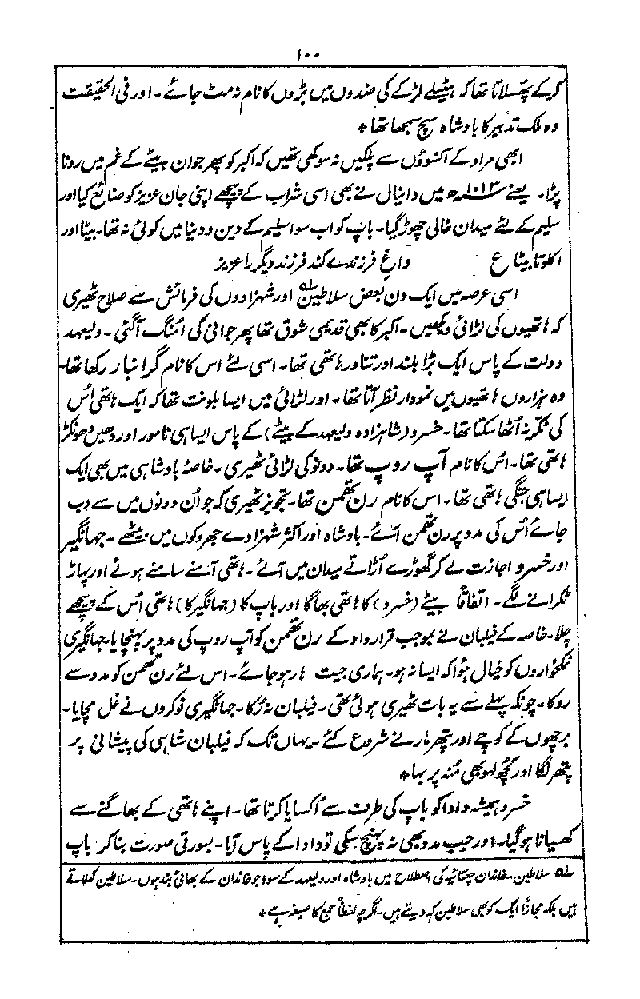 ۱۰۰
کرکے پھسلاتا تھا کہ ہٹیلے لڑکے کی ضدوں میں بڑوں کا نام نہ مٹ جائے۔ اور فی الحقیقت
وہ ملک تدبیر کا بادشاہ سچ سمجھا تھا *
ابھی مراد کے آنسوؤں سے پلکیں نہ سوکھی تھیں کہ اکبر کو پھر جوان بیٹے کے غم میں رونا
پڑا۔ یعنے ۱۰۱۳ھ میں دانیال نے بھی اسی شراب کے پیچھے اپنی جان عزیز کو ضائع کیا اور
سلیم کے لئے میدان خالی چھوڑ گیا۔ باپ کو اب سوا سلیم کے دین و دنیا میں کوئی نہ تھا۔ بیٹا اور
اکلوتا بیٹا ع داغِ فرزندے کند فرزند دیگر را عزیز
اسی عرصہ میں ایک دن بعض سلاطین لہ اور شہزادوں کی فرمائش سے صلاح ٹھیری
کہ ہاتھیوں کی لڑائی دیکھیں۔ اکبر کا بھی قدیمی شوق تھا پھر جوانی کی امنگ آگئی۔ ولیعہد
دولت کے پاس ایک بڑا بلند اور تناور ہاتھی تھا۔ اسی لئے اس کا نام گرانبار رکھا تھا۔
وہ ہزاروں ہاتھیوں میں نمودار نظر آتا تھا۔ اور لڑائی میں ایسا بلونت تھا کہ ایک ہاتھی اُس
کی ٹکر نہ اُٹھا سکتا تھا۔ خسرو (شاہزادہ ولیعہد کے بیٹے) کے پاس ایسا ہی نامور اور دھین دھوکڑ
ہاتھی تھا۔ اُس کا نام آپ روپ تھا۔ دونو کی لڑائی ٹھیری۔ خاصۂ بادشاہی میں بھی ایک
ایسا ہی جنگی ہاتھی تھا۔ اس کا نام رن تھمن تھا۔ تجویز ٹھیری کہ جو ان دونوں میں سے دب
جائے اُس کی مدد پر رن تھمن آئے۔ بادشاہ اور اکثر شہزادے جھروکوں میں بیٹھے۔ جہانگیر
اور خسرو اجازت لے کر گھوڑے اُڑاتے میدان میں آئے۔ ہاتھی آمنے سامنے ہوئے اور پہاڑ
ٹکرانے لگے۔ اتفاقاً بیٹے (خسرو) کا ہاتھی بھاگا اور باپ کا (جہانگیر کا) ہاتھی اُس کے پیچھے
چلا۔ خاصہ کے فیلبان نے بموجب قرار داد کے رن تھمن کو آپ روپ کی مدد پر پہنچایا۔ جہانگیری
نمکخواروں کو خیال ہوا کہ ایسا نہ ہو۔ ہماری جیت ہار ہو جائے۔ اس لئے رن تھمن کو مدد سے
روکا۔ چونکہ پہلے سے یہ بات ٹھیری ہوئی تھی۔ فیلبان نہ رکا۔ جہانگیری نوکروں نے غل مچایا۔
برچھوں کے کوچے اور پتھر مارنے شروع کئے۔ یہاں تک کہ فیلبان شاہی کی پیشانی پر
پتھر لگا اور کچھ لہو بھی مُنہ پر بہا *
خسرو ہمیشہ دادا کو باپ کی طرف سے اُکسایا کرتا تھا۔ اپنے ہاتھی کے بھاگنے سے
کھسیانا ہوگیا۔ اور جب مدد بھی نہ پہنچ سکی تو دادا کے پاس آیا۔ بسورتی صورت بنا کر باپ
لہ سلاطین۔ خاندان چغتائیہ کی اصطلاح میں بادشاہ اور ولیعہد کے سوا جو خاندان کے بھائی بند ہوں۔ سلاطین کہلاتے
ہیں بلکہ مجازاً ایک کو بھی سلاطین کہہ دیتے ہیں۔ گرچہ لفظاً جمع کا صیغہ ہے *